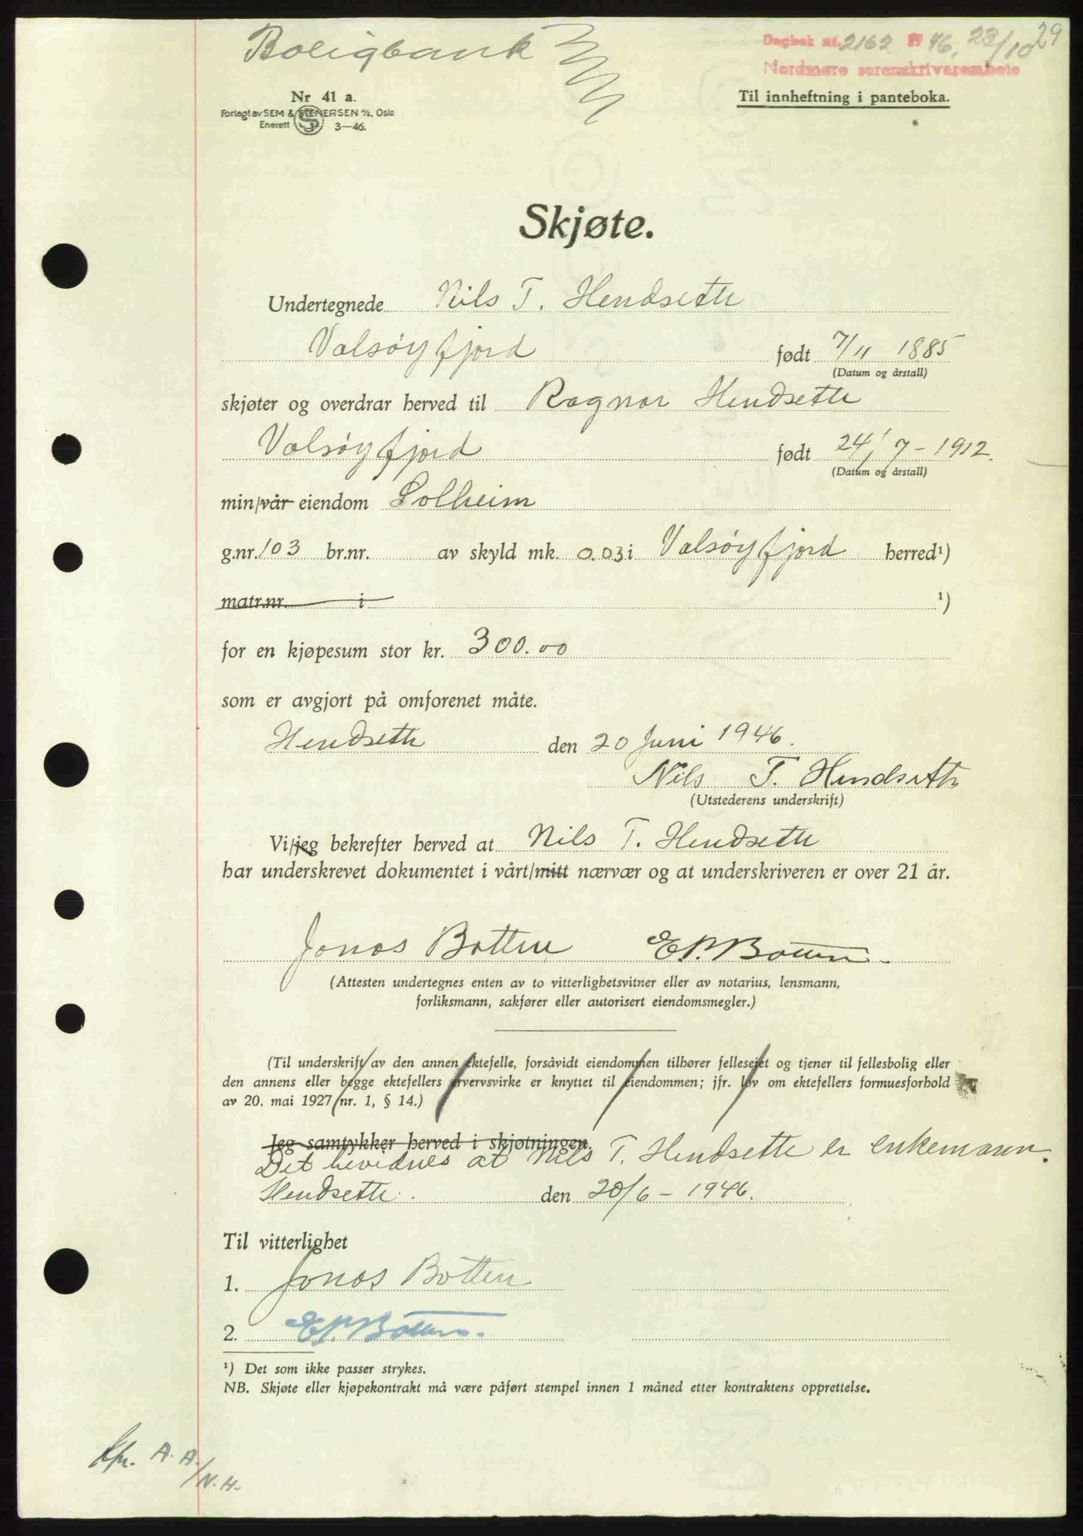 Boligbank
Dagbok nr. 2162 19 46, 23/10 29
Nordmøre sorenskriverembete
Nr 41 a.
Til innheftning i panteboka.
Forlagt av SEM & STENERSEN A/S, Oslo
Enerett S 3—46.
Skjøte.
Undertegnede Nils T. Hendseth
Valsøyfjord født 7/11 1885
(Datum og årstall)
skjøter og overdrar herved til Ragnar Hendseth
Valsøyfjord født 24/7-1912.
(Datum og årstall)
min/vår eiendom Solheim
g.nr. 103 br.nr. av skyld mk. 0.03 i Valsøyfjord herred¹)
matr.nr. i ¹)
for en kjøpesum stor kr. 300.00
som er avgjort på omforenet måte.
Hendseth den 20 Juni 1946.
Nils T. Hendseth
(Utstederens underskrift)
Vi/jeg bekrefter herved at Nils T. Hendseth
har underskrevet dokumentet i vårt/mitt nærvær og at underskriveren er over 21 år.
Jonas Botten E.P. Botten.
(Attesten undertegnes enten av to vitterlighetsvitner eller av notarius, lensmann,
forliksmann, sakfører eller autorisert eiendomsmegler.)
(Til underskrift av den annen ektefelle, forsåvidt eiendommen tilhører felleseiet og tjener til fellesbolig eller
den annens eller begge ektefellers ervervsvirke er knyttet til eiendommen; jfr. lov om ektefellers formuesforhold
av 20. mai 1927 nr. 1, § 14.)
Jeg samtykker herved i skjøtningen.
Det bevidnes at Nils T. Hendsette er enkemann.
Hendsette. den 20/6-1946.
Til vitterlighet
1. Jonas Botten
2. E.P. Botten.
¹) Det som ikke passer strykes.
NB. Skjøte eller kjøpekontrakt må være påført stempel innen 1 måned etter kontraktens opprettelse.
A.A./N.H.